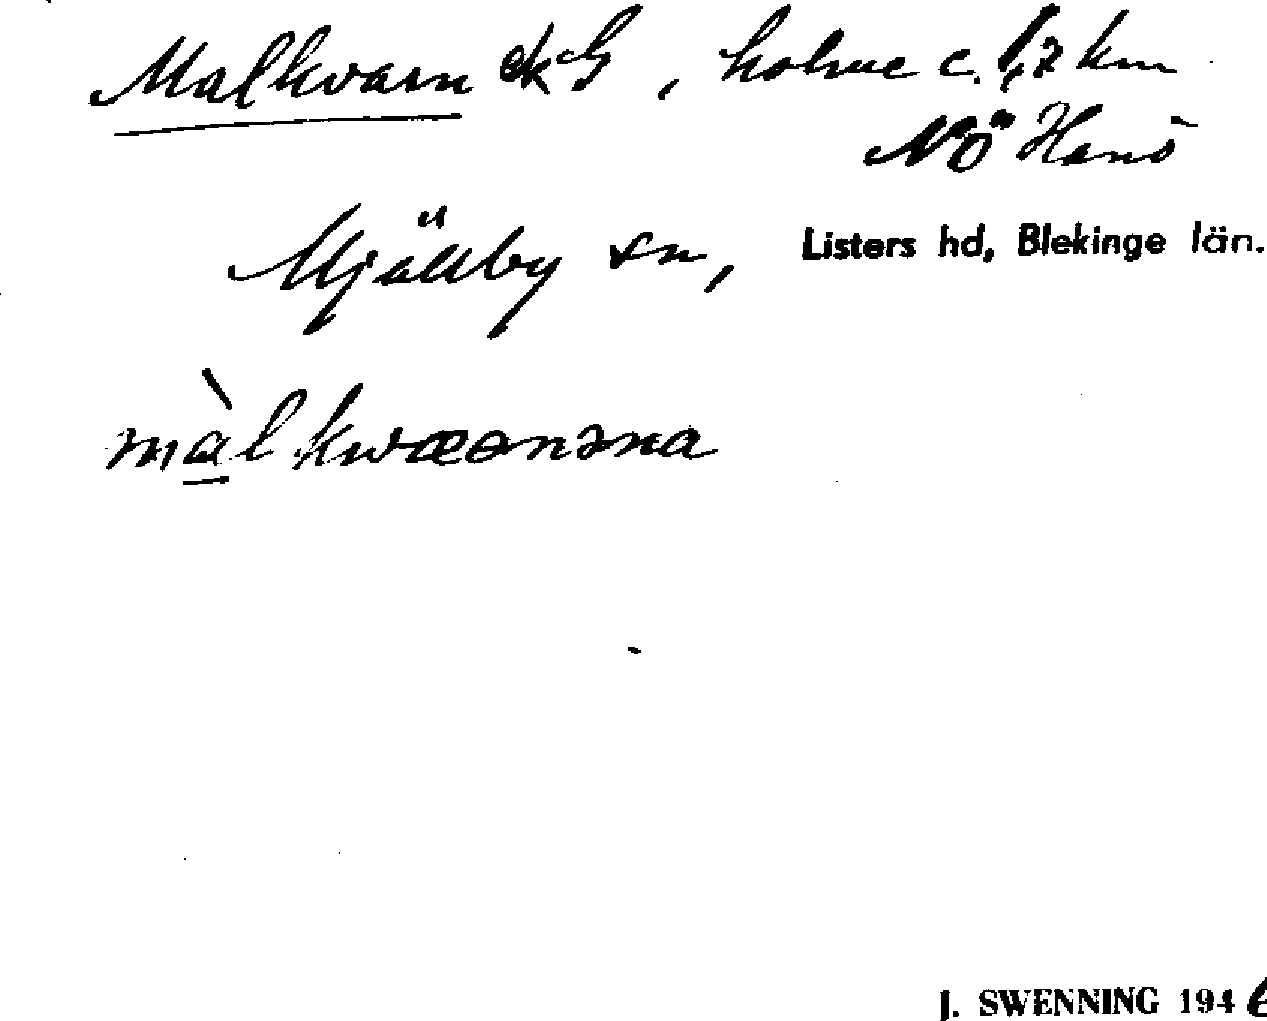 Malkvarn ekG, holme c. 1,7 km
NÖ Hanö
Mjällby sn, Listers hd, Blekinge län.
màl kwæənəna
J. SWENNING 1946